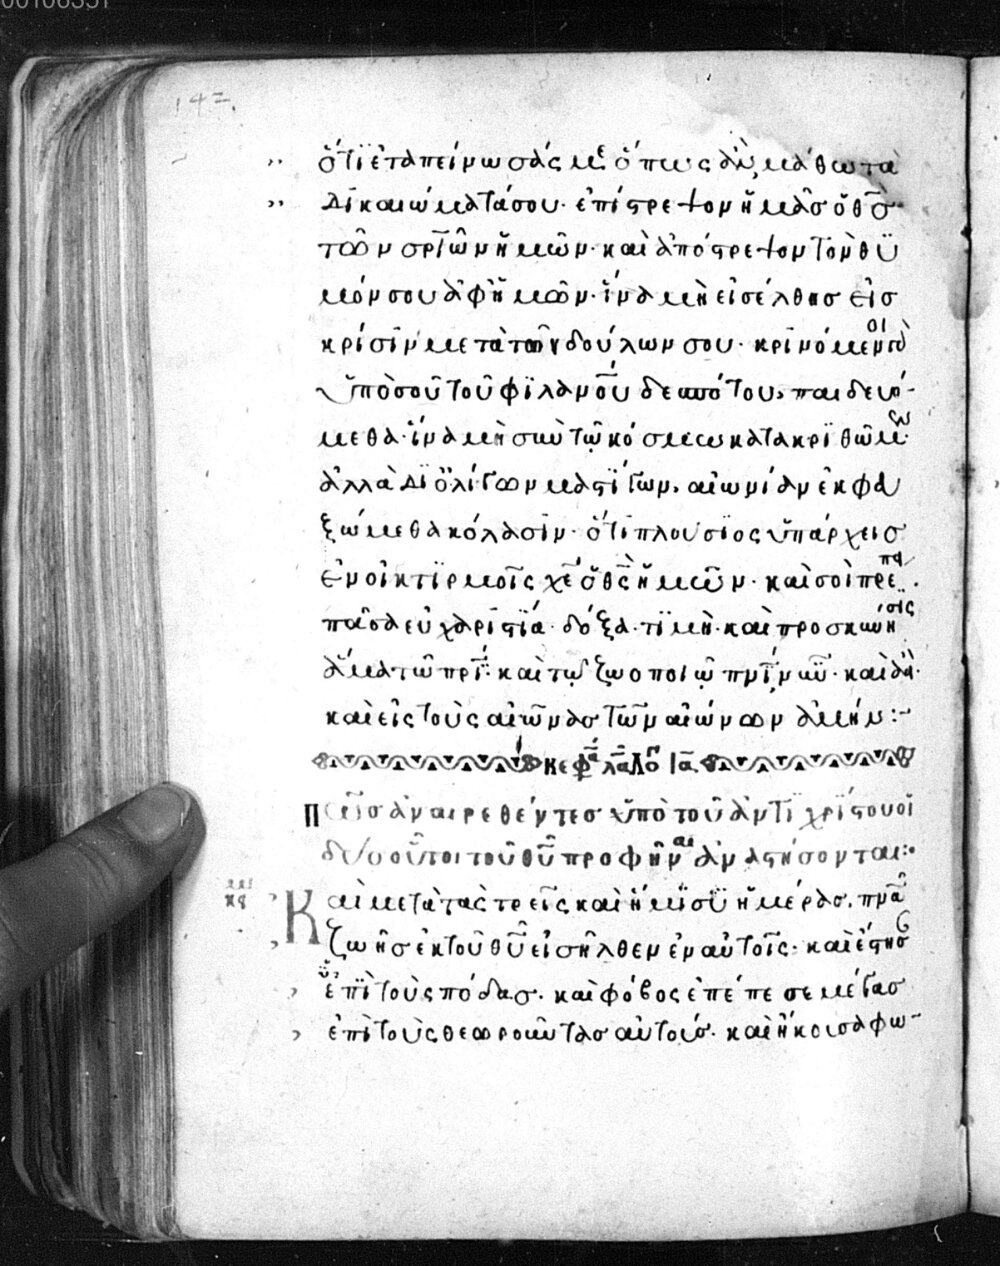 00106351
142.
ὅτι ἐταπείνωσάς με ὅπως ἂν μάθω τὰ
δικαιώματά σου· ἐπίστρεψον ἡμᾶσ ὁ θς̅
τῶν σρ̅ιῶν ἡμῶν· καὶ ἀπόστρεψον τὸν θυ
μόν σου ἀφ ἡμῶν· ἵνα μὴ εἰσέλθησ εἰσ
κρίσιν μετὰ τῶν δούλων σου· κρινόμενοι
ὑπὸ σοῦ τοῦ φιλαν̅ου δεσπότου, παιδευό-
μεθα· ἵνα μὴ σὺν τῷ κόσμω κατακριθῶμεν·
ἀλλὰ δι ὀλίγων μαστίγων, αἰωνίαν ἐκφευ
ξώμεθα κόλασιν· ὅτι πλούσιος ὑπάρχεισ
ἐν οἰκτιρμοῖς χε̅ ὁ θς̅ ἡμῶν· καὶ σοὶ πρέπει
πᾶσα εὐχαριστία· δόξα· τιμὴ· καὶ προσκύνησις
ἅμα τῶ πρι̅· καὶ τῷ ζωοποιῷ πν̅ι, νῦν· καὶ ἀεὶ·
καὶ εἰς τοὺς αἰῶνασ τῶν αἰώνων ἀμήν :~
κεφάλαιον ια
Πῶσ ἀναιρεθέντεσ ὑπὸ τοῦ ἀντιχρίστου οἱ
δύο οὗτοι τοῦ θυ̅ προφῆται ἀναστήσονται:·
Καὶ μετὰ τὰς τρεῖς καὶ ἥμισυ ἡμέρασ, πν̅α
ζωῆσ ἐκ τοῦ θυ̅ εἰσῆλθεν ἐν αὐτοῖς· καὶ ἔστησαν
ἐπὶ τοὺς πόδασ· καὶ φόβος ἐπέπεσε μέγασ
ἐπὶ τοὺς θεωροῦντασ αὐτούσ· καὶ ἤκουσα φω-